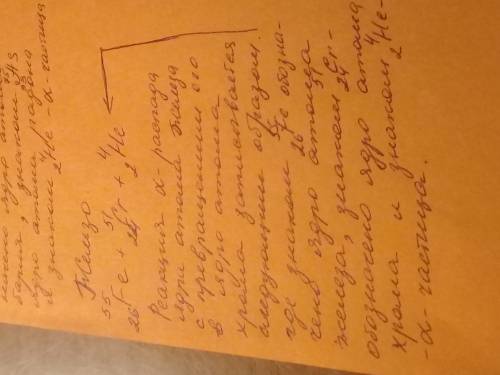 ядро атома
бария, знаком
ядро атома радона
и знаком ⁴₂He - α-частица
Железо
⁵⁵₂₆Fe + ⁵¹₂₄Cr + ⁴₂He
Реакция α-распада
ядра атома железа
с превращением его
в ядро атома
хрома записывается
следующим образом.
где знаком ⁵⁵₂₆Fe обозна-
чено ядро атома
железа, знаком ⁵¹₂₄Cr-
обозначено ядро атома
хрома и знаком ⁴₂He-
-α-частица.